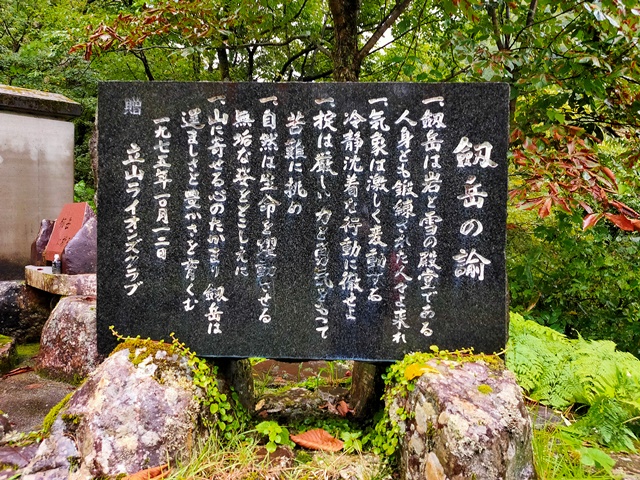 釼岳の諭
一、釼岳は岩と雪の殿堂である
人身とも鍛練された人々よ来れ
一、気象は激しく変動する
冷静沈着な行動に徹せよ
一、掟は厳しい 力と勇気をもって
苦難に挑め
一、自然は生命を躍動させる
無垢な姿をとこしえに
一、山に寄せる心のたかまり 釼岳は
逞ましさと豊かさを育くむ
一九七五年一〇月一二日
立山ライオンズクラブ
贈